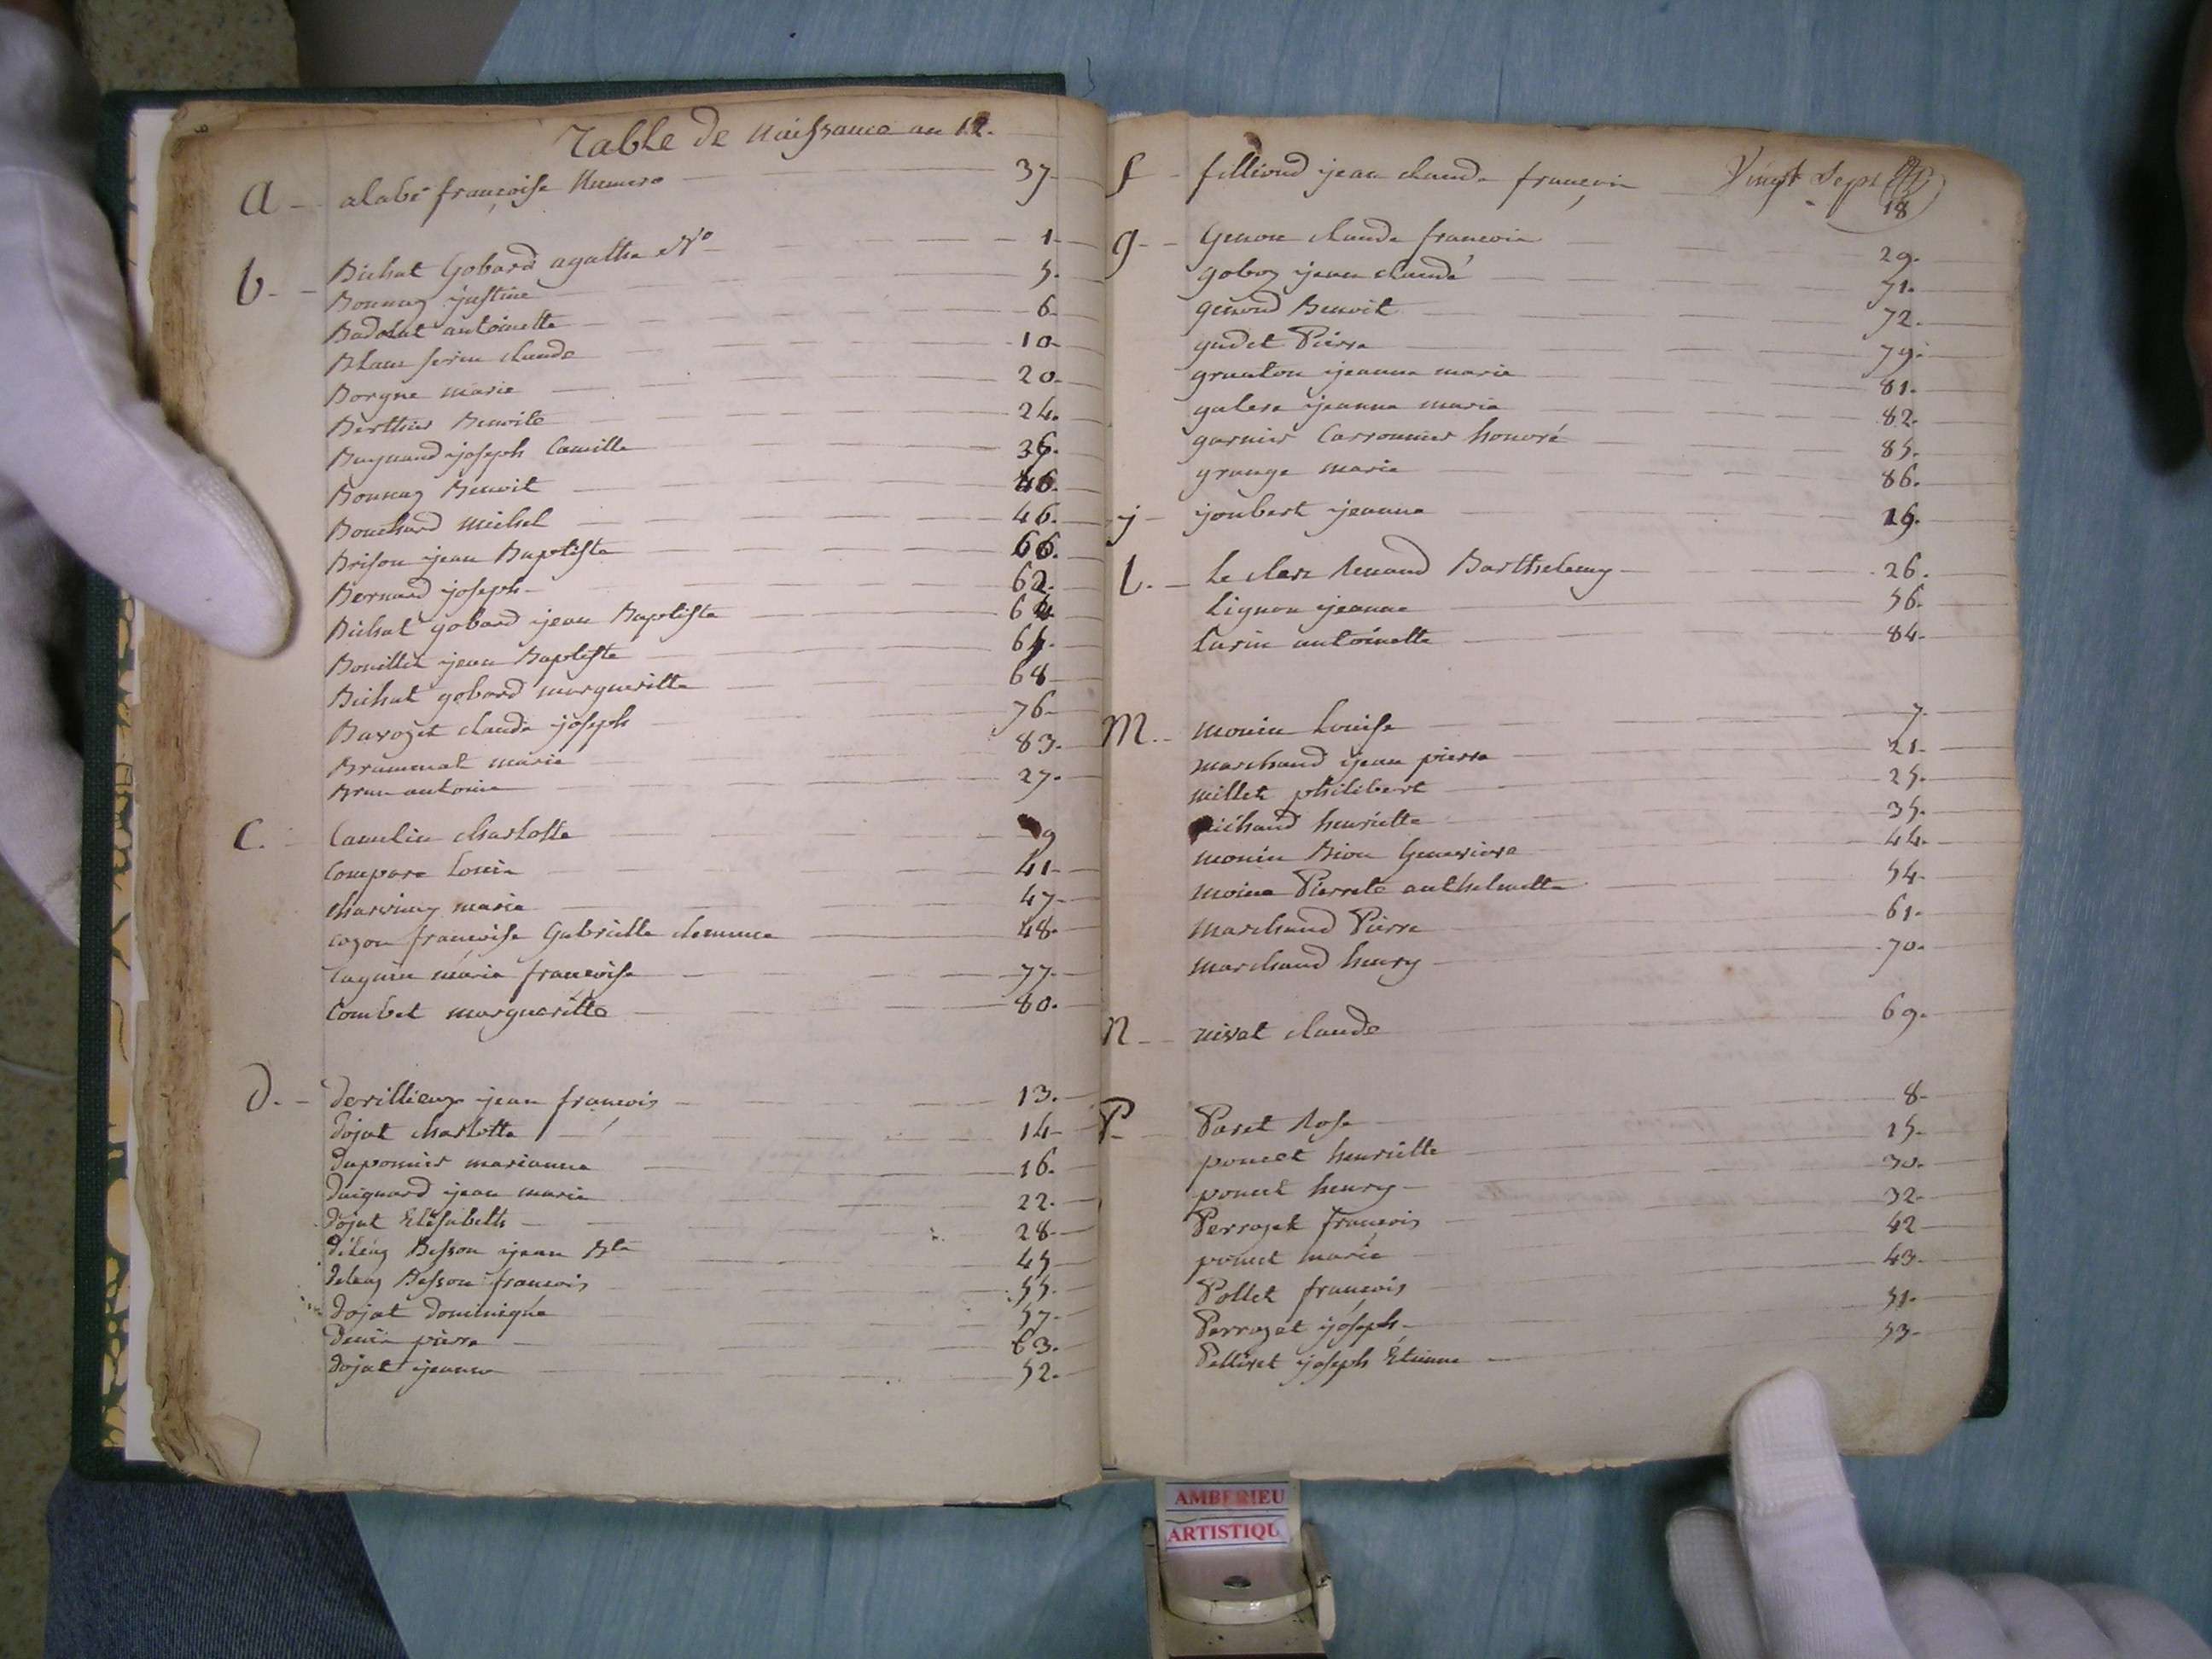 Table de Naissance an 12.
a - alabe françoise Numero 37
b - Bichat Gobard agathe No 1
Bonnaz justine 5.
Badolat antoinette 6
Blanc ferin claude 10
Borgne marie 20
Berthier Benoite 24.
Buynand joseph Camille 36.
Bonnaz Benoit 40.
Bouchard Michel 46.
Brison jean Baptiste 66.
Bernard joseph 62.
Bichat gobard jean Baptiste 64
Bouillet jean Baptiste
Bichat gobard margueritte 68
Bavozet claude joseph 76
Brummat marie 83.
Brun antoine 27.
C. Camelin charlotte 9
Compare Louis 41
Charvinez marie 47
cozon françoise Gabrielle clemence 48
Cagnin marie françoise 77.
Combet margueritte 80.
D. - dervillieux jean françois 13.
dojat charlotte 14
duponnier marianne 16.
duignard jean marie 22.
dojat Elisabeth 28
déléaz Besson jean Bte 45
deleaz Besson françois 55.
dojat dominique 57
denis pierre 63.
dojat jeanne 52.
f - filliond jean claude françois 18
Vingt Sept
g - Genou claude francois 29.
goboz jean claude 51.
genoud Benoit 72.
gudet Pierre 79.
gruaton jeanne marie 81.
galese jeanne marie 82.
garnier Carronnier honoré 85.
grange marie 86.
j - joubert jeanne 19.
l. - le clerc Renaud Barthelemy 26.
Lignon jeanne 56.
Lurin antoinette 84
M. - monin Louise 7.
marchand jean pierre 21
millet philibert 25.
michaud henriette 35.
monin Bion Genevieve 44.
moine Pierrete anthelmette 54
marchand Pierre 61
marchand henry 70.
N - nivat claude 69.
P - Paret Rose 8
poncet henriette 15
poncet henry 30.
Perrozet françois 32
poncet marie 42
Pollet françois 43
Perrozet joseph 51
Pelliset joseph Etienne 53
AMBERIEU
ARTISTIQU